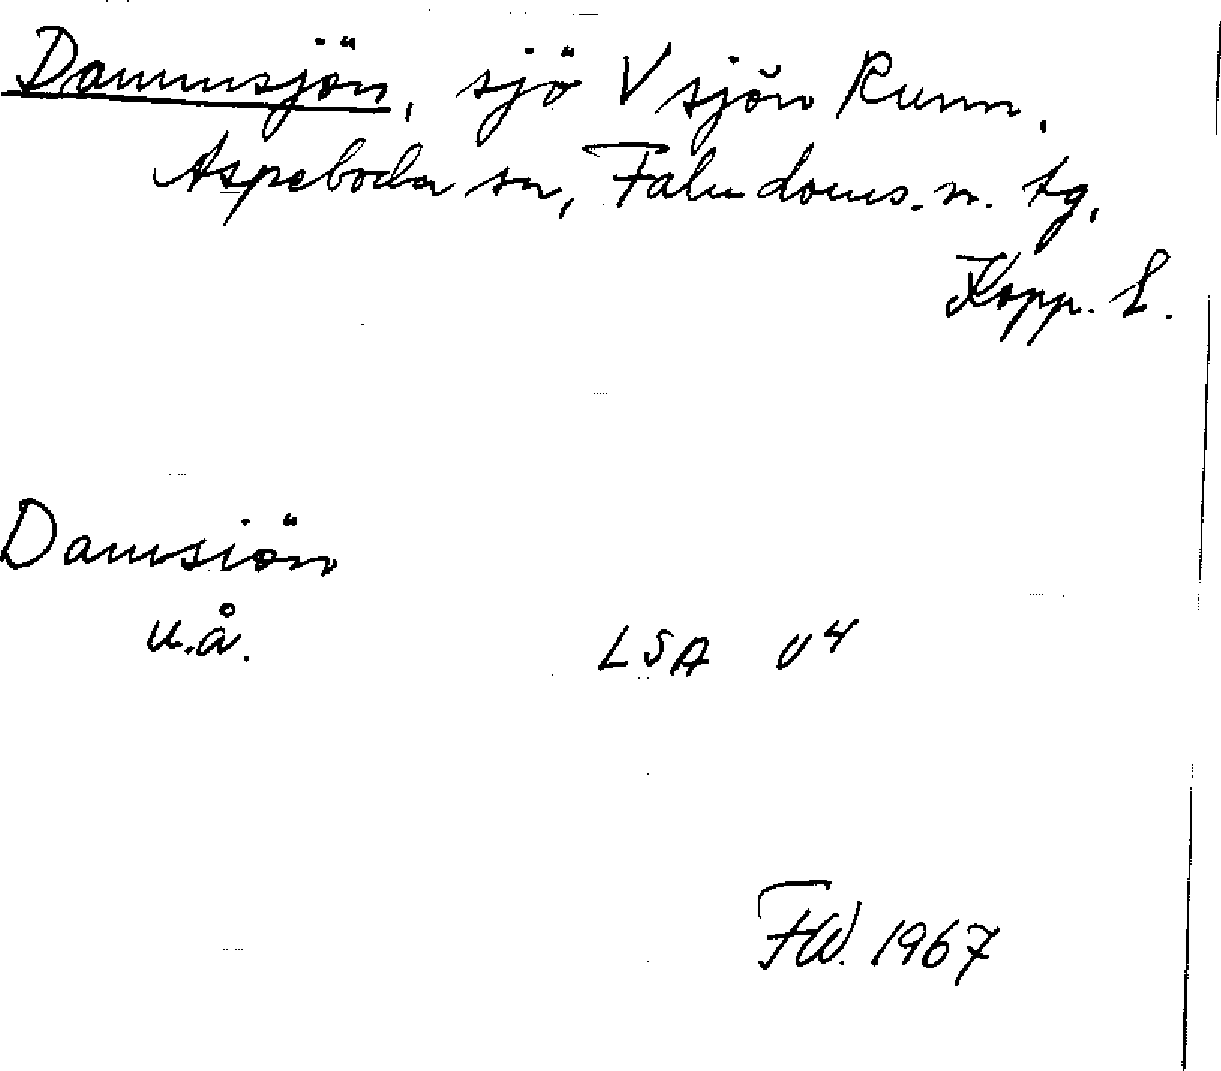 Dammsjön, sjö V sjön Runn.
Aspeboda sn, Falu doms. n. tg,
Kopp. L.
Damsiön
u.å. LSA U4
FW. 1967